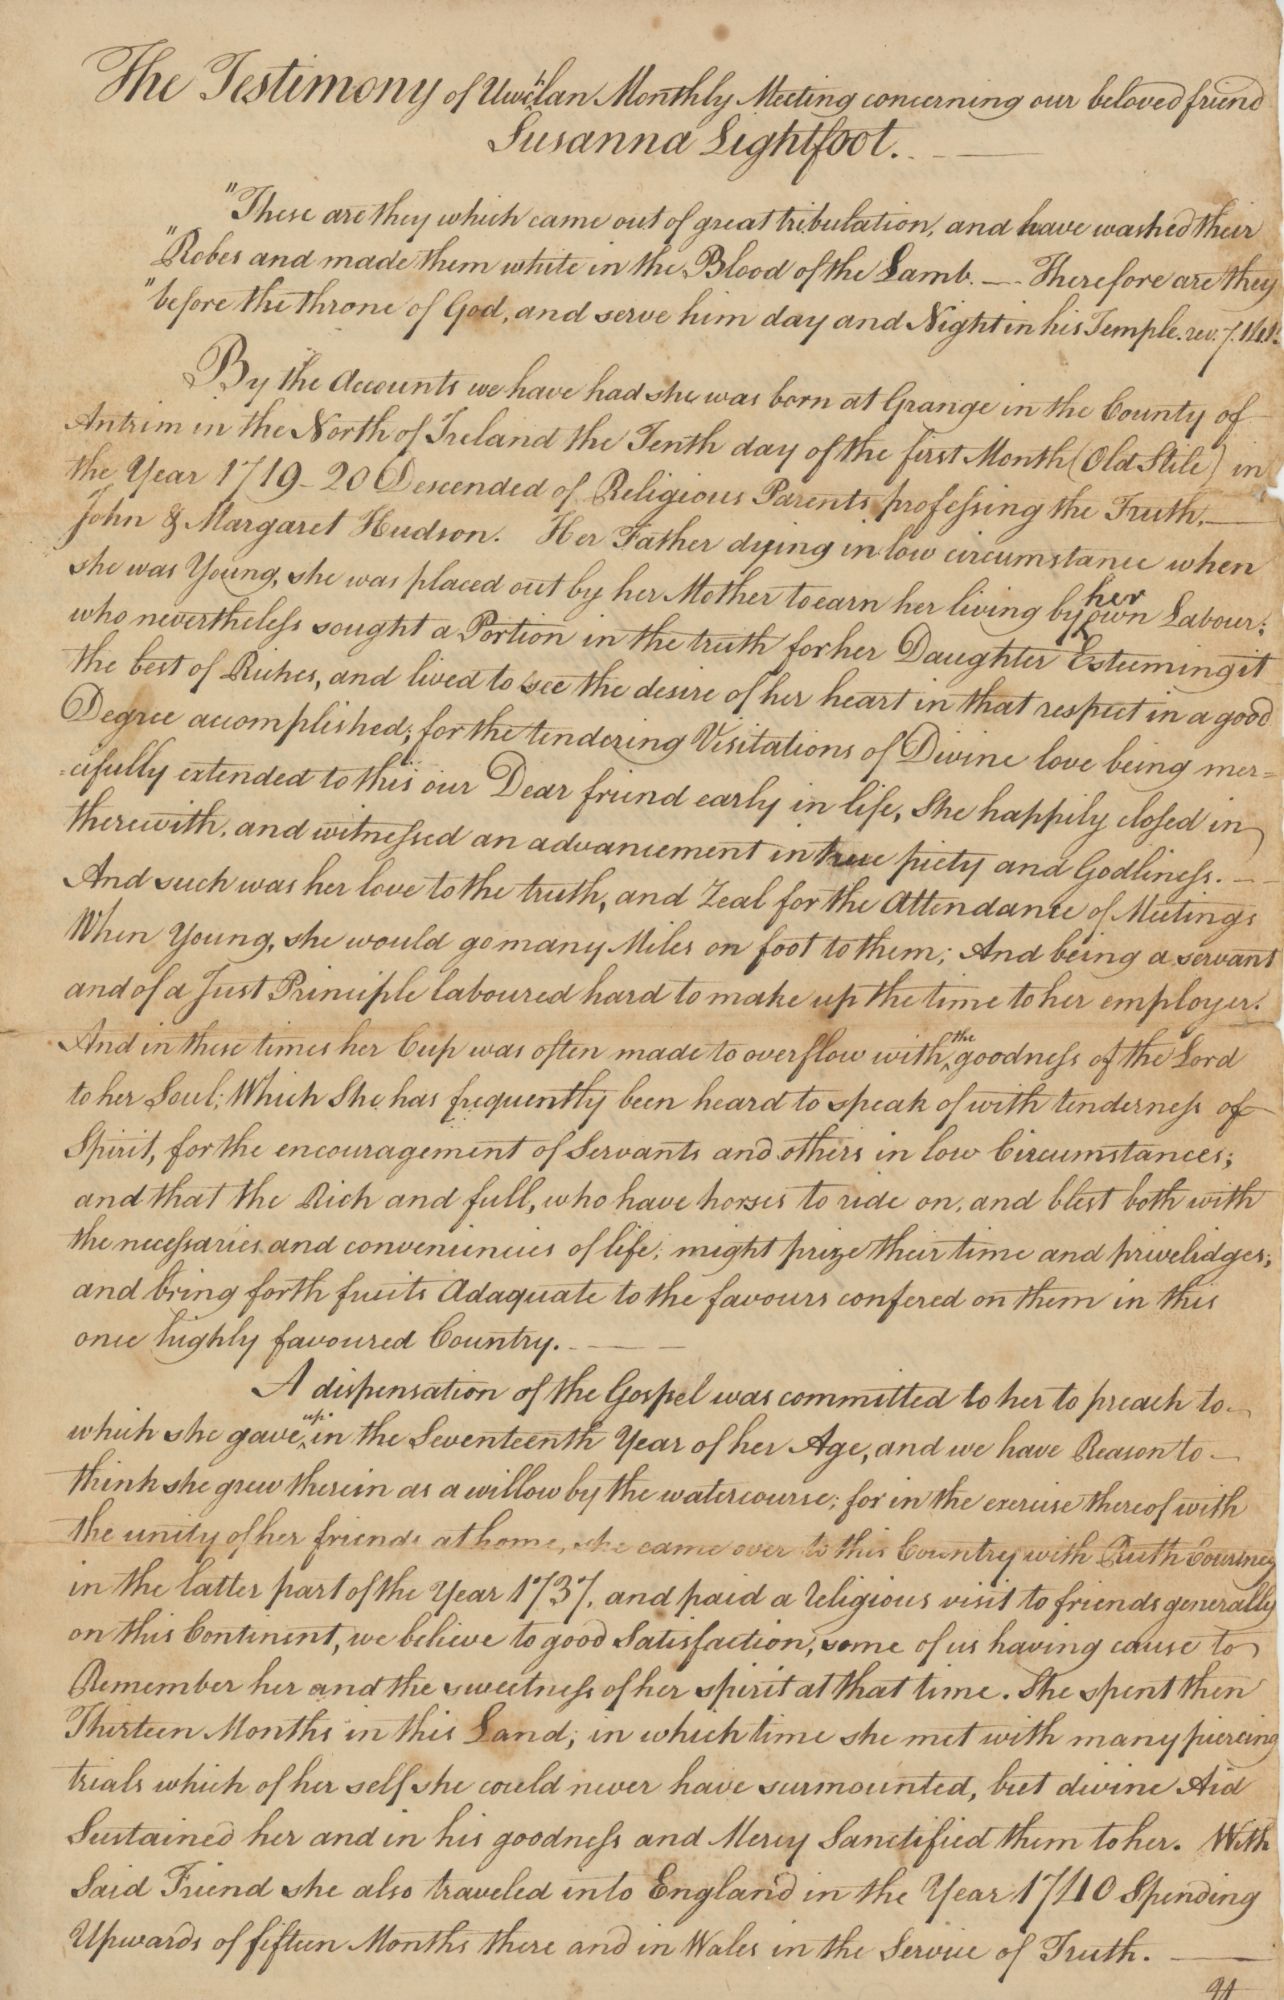 The Testimony of Uwchlan Monthly Meeting concerning our beloved friend
Susanna Lightfoot.
"These are they which came out of great tribulation, and have washed their
"Robes and made them white in the Blood of the Lamb. — Therefore are they
"before the throne of God, and serve him day and Night in his Temple. rev. 7. 14
By the Accounts we have had she was born at Grange in the County of
Antrim in the North of Ireland the Tenth day of the first Month (Old Stile) in
the Year 1719-20 Descended of Religious Parents professing the Truth. —
John & Margaret Hudson. Her Father dying in low circumstance when
she was Young, she was placed out by her Mother to earn her living by her own Labour;
who nevertheless sought a Portion in the truth for her Daughter Esteeming it
the best of Riches, and lived to see the desire of her heart in that respect in a good
Degree accomplished; for the tendering Visitations of Divine love being mer=
=cifully extended to this our Dear friend early in life, She happily closed in
therewith, and witnessed an advancement in true piety and Godliness. —
And such was her love to the truth, and Zeal for the Attendance of Meetings
When Young, she would go many Miles on foot to them; And being a servant
and of a Just Principle laboured hard to make up the time to her employer.
And in these times her Cup was often made to overflow with the goodness of the Lord
to her Soul; Which She has frequently been heard to speak of with tenderness of
Spirit, for the encouragement of Servants and others in low Circumstances;
and that the Rich and full, who have horses to ride on, and blest both with
the necessaries and conveniencies of life, might prize their time and privelidges;
and bring forth fruits Adaquate to the favours confered on them in this
once highly favoured Country. —
A dispensation of the Gospel was committed to her to preach to
which she gave up in the Seventeenth Year of her Age, and we have Reason to
think she grew therein as a willow by the watercourse; for in the exercise thereof with
the unity of her friends at home, she came over to this Country with Ruth Courtney
in the latter part of the Year 1737, and paid a religious visit to friends generally
on this Continent, we believe to good Satisfaction, some of us having cause to
Remember her and the sweetness of her spirit at that time. She spent then
Thirteen Months in this Land; in which time she met with many piercing
trials which of her self she could never have surmounted, but divine Aid
Sustained her and in his goodness and Mercy Sanctified them to her. With
Said Friend she also traveled into England in the Year 1740 Spending
Upwards of fifteen Months there and in Wales in the Service of Truth. —